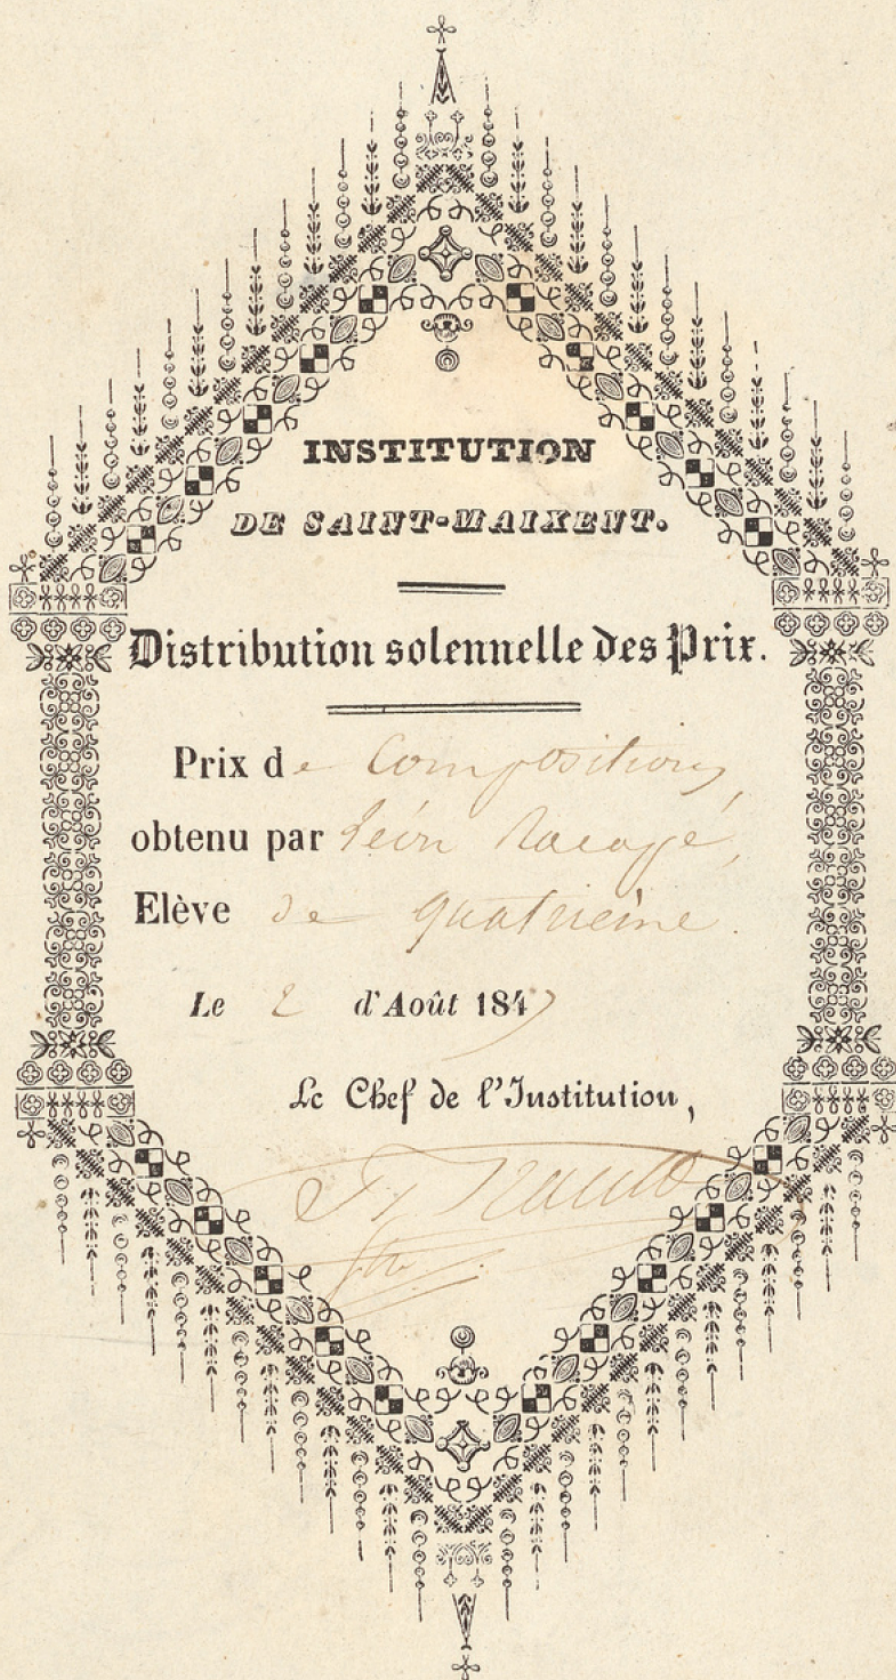 INSTITUTION
DE SAINT-MAIXENT.
Distribution solennelle des Prix.
Prix de Composition,
obtenu par Léon
Elève de quatrième.
Le 2 d'Août 1847
Le Chef de l'Institution,